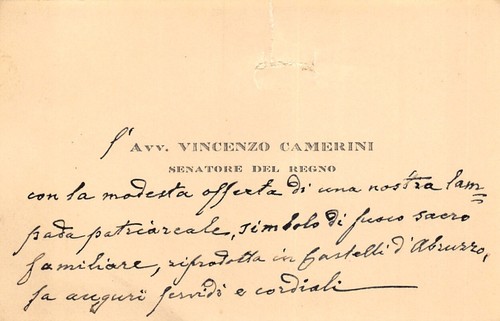 l'Avv. VINCENZO CAMERINI
SENATORE DEL REGNO
con la modesta offerta di una nostra lam=
pada patriarcale, simbolo di fuoco sacro
familiare, riprodotta in Castelli d'Abruzzo,
fa auguri fervidi e cordiali